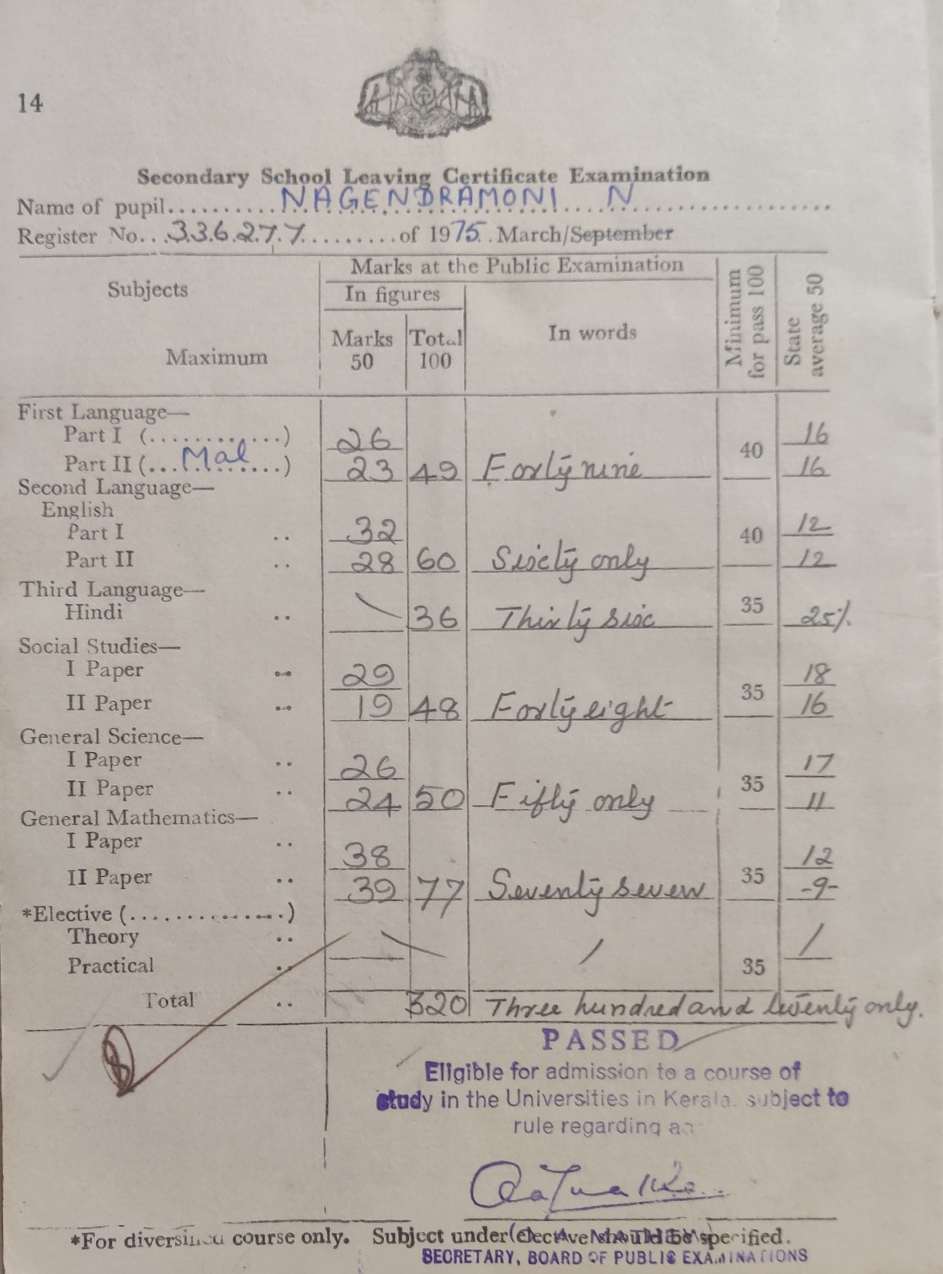 14
Secondary School Leaving Certificate Examination
Name of pupil.......... NAGENDRAMONI N
Register No... 336277 ......... of 1975. March/September
Subjects
Marks at the Public Examination
In figures
In words
Minimum for pass 100
State average 50
Maximum
Marks 50
Total 100
First Language—
Part I (.............) 26 16
Part II (...Mal.......) 23 49 Forty nine 40 16
Second Language—
English
Part I .. 32 12
Part II .. 28 60 Sixty only 40 12
Third Language—
Hindi .. 36 Thirty six 35 25%
Social Studies—
I Paper .. 29 18
II Paper .. 19 48 Forty eight 35 16
General Science—
I Paper .. 26 17
II Paper .. 24 50 Fifty only 35 11
General Mathematics—
I Paper .. 38 12
II Paper .. 39 77 Seventy seven 35 -9-
*Elective (..............)
Theory .. / /
Practical .. 35
Total .. 320 Three hundred and twenty only.
PASSED
Eligible for admission to a course of
study in the Universities in Kerala. subject to
rule regarding
*For diversified course only. Subject under elective should be specified.
SECRETARY, BOARD OF PUBLIC EXAMINATIONS